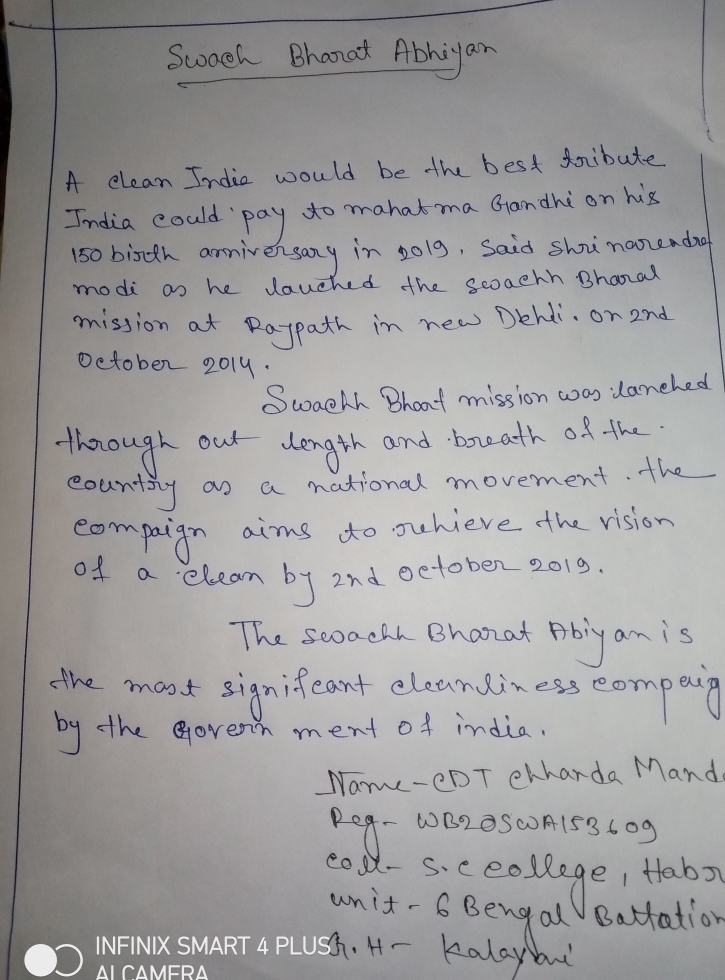 Swach Bharat Abhiyan
A clean India would be the best tribute
India could pay to mahatma Gandhi on his
150 birth anniversary in 2019, said shri narendra
modi as he lauched the swachh Bharal
mission at Rajpath in new Dehli. on 2nd
October 2014.
Swachh Bhoat mission was lanched
through out length and breath of the
country as a national movement. the
compaign aims to achieve the vision
of a clean by 2nd october 2019.
The swachh Bharat Abiyan is
the most significant cleanliness compaig
by the Govern ment of india.
Name- CDT Chhanda Mand
Reg- WB20SWA153609
coll- S.C college, Habr
unit- 6 Bengal Battation
G.H- Kalayani
INFINIX SMART 4 PLUS
AI CAMERA